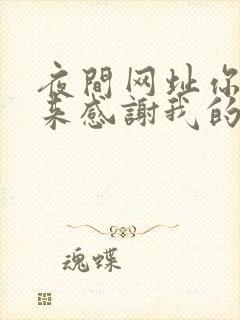 夜間网址你
来感謝我的
魂蝶